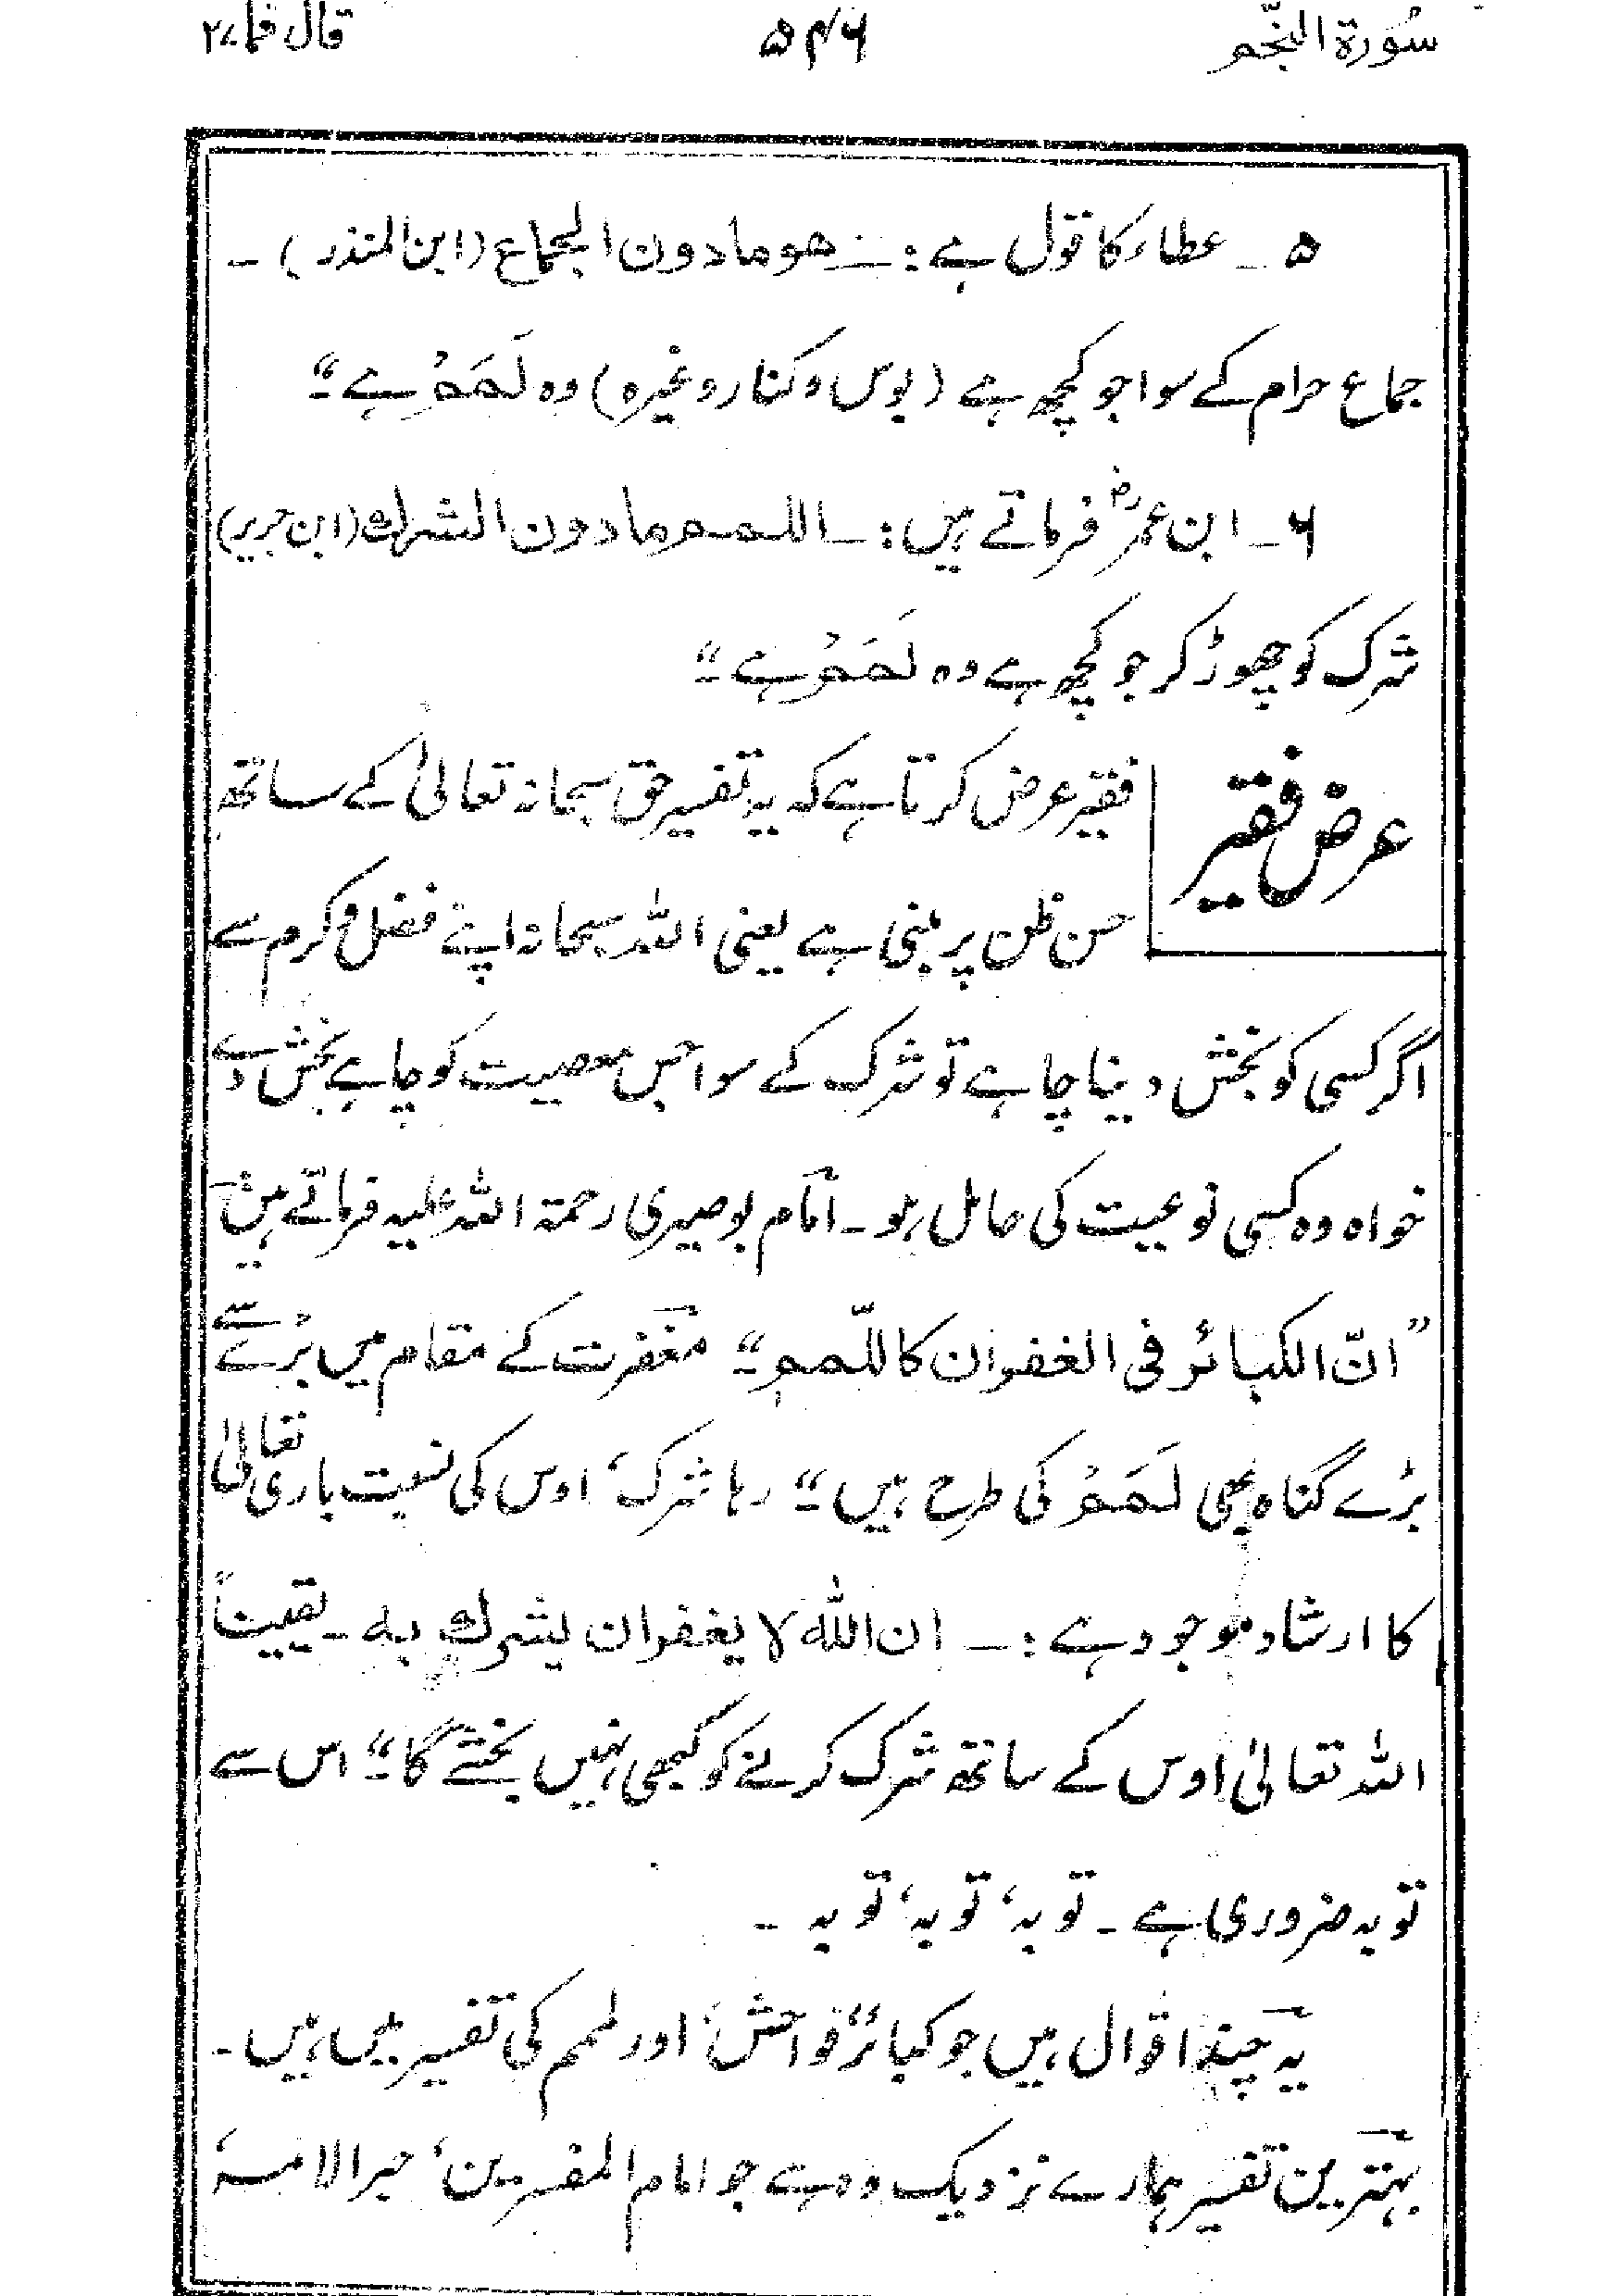 سُورة النّجم ۵۴۶ قال فما ۲۷
۵ ۔ عطاء کا قول ہے :۔ ھو ما دون الجماع (ابن المنذر) ۔
جماع حرام کے سوا جو کچھ ہے (بوس و کنار وغیرہ) وہ لَمَمْ ہے“۔
۶ ۔ ابن عمرؓ فرماتے ہیں :۔ اللمم ما دون الشرك (ابن جریر)
شرک کو چھوڑ کر جو کچھ ہے وہ لَمَمْ ہے“۔
عرض فقیر
فقیر عرض کرتا ہے کہ یہ تفسیر حق سبحانہ تعالیٰ کے ساتھ
حسن ظن پر مبنی ہے یعنی اللہ سبحانہ اپنے فضل و کرم سے
اگر کسی کو بخش دینا چاہے تو شرک کے سوا جس معصیت کو چاہے بخش دے
خواہ وہ کسی نوعیت کی حامل ہو ۔ امام بوصیری رحمۃ اللہ علیہ فرماتے ہیں
”انّ الکبائر فی الغفران کاللّمم“۔ مغفرت کے مقام میں بڑے سے
بڑے گناہ بھی لَمَمْ کی طرح ہیں“۔ رہا شرک، اوس کی نسبت باری تعالیٰ
کا ارشاد موجود ہے :۔ ان اللہ لا یغفر ان یشرك بہ ۔ یقیناً
اللہ تعالیٰ اوس کے ساتھ شرک کرنے کو کبھی نہیں بخشے گا“۔ اس سے
توبہ ضروری ہے ۔ توبہ، توبہ، توبہ ۔
یہ چند اقوال ہیں جو کبائر، فواحش، اور لمم کی تفسیر میں ہیں ۔
بہترین تفسیر ہمارے نزدیک وہ ہے جو امام المفسرین، حبر الامۃ،